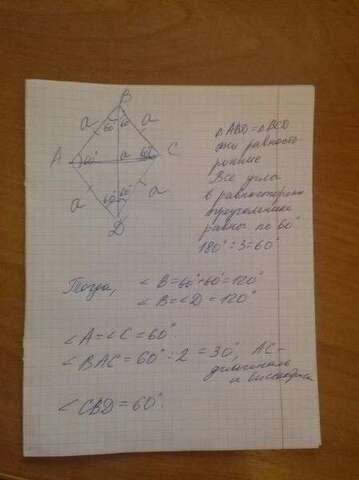 B
a a
60° 60°
A 60° a 60° C
a 60° 60° a
D
△ABD=△BCD
они равносто-
ронние
Все углы
в равностороннем
треугольнике
равны по 60°
180° : 3=60°
Тогда, ∠B=60°+60°=120°
∠B=∠D=120°
∠A=∠C=60°.
∠BAC=60° : 2=30°, AC-
диагональ
и биссектриса
∠CBD=60°.